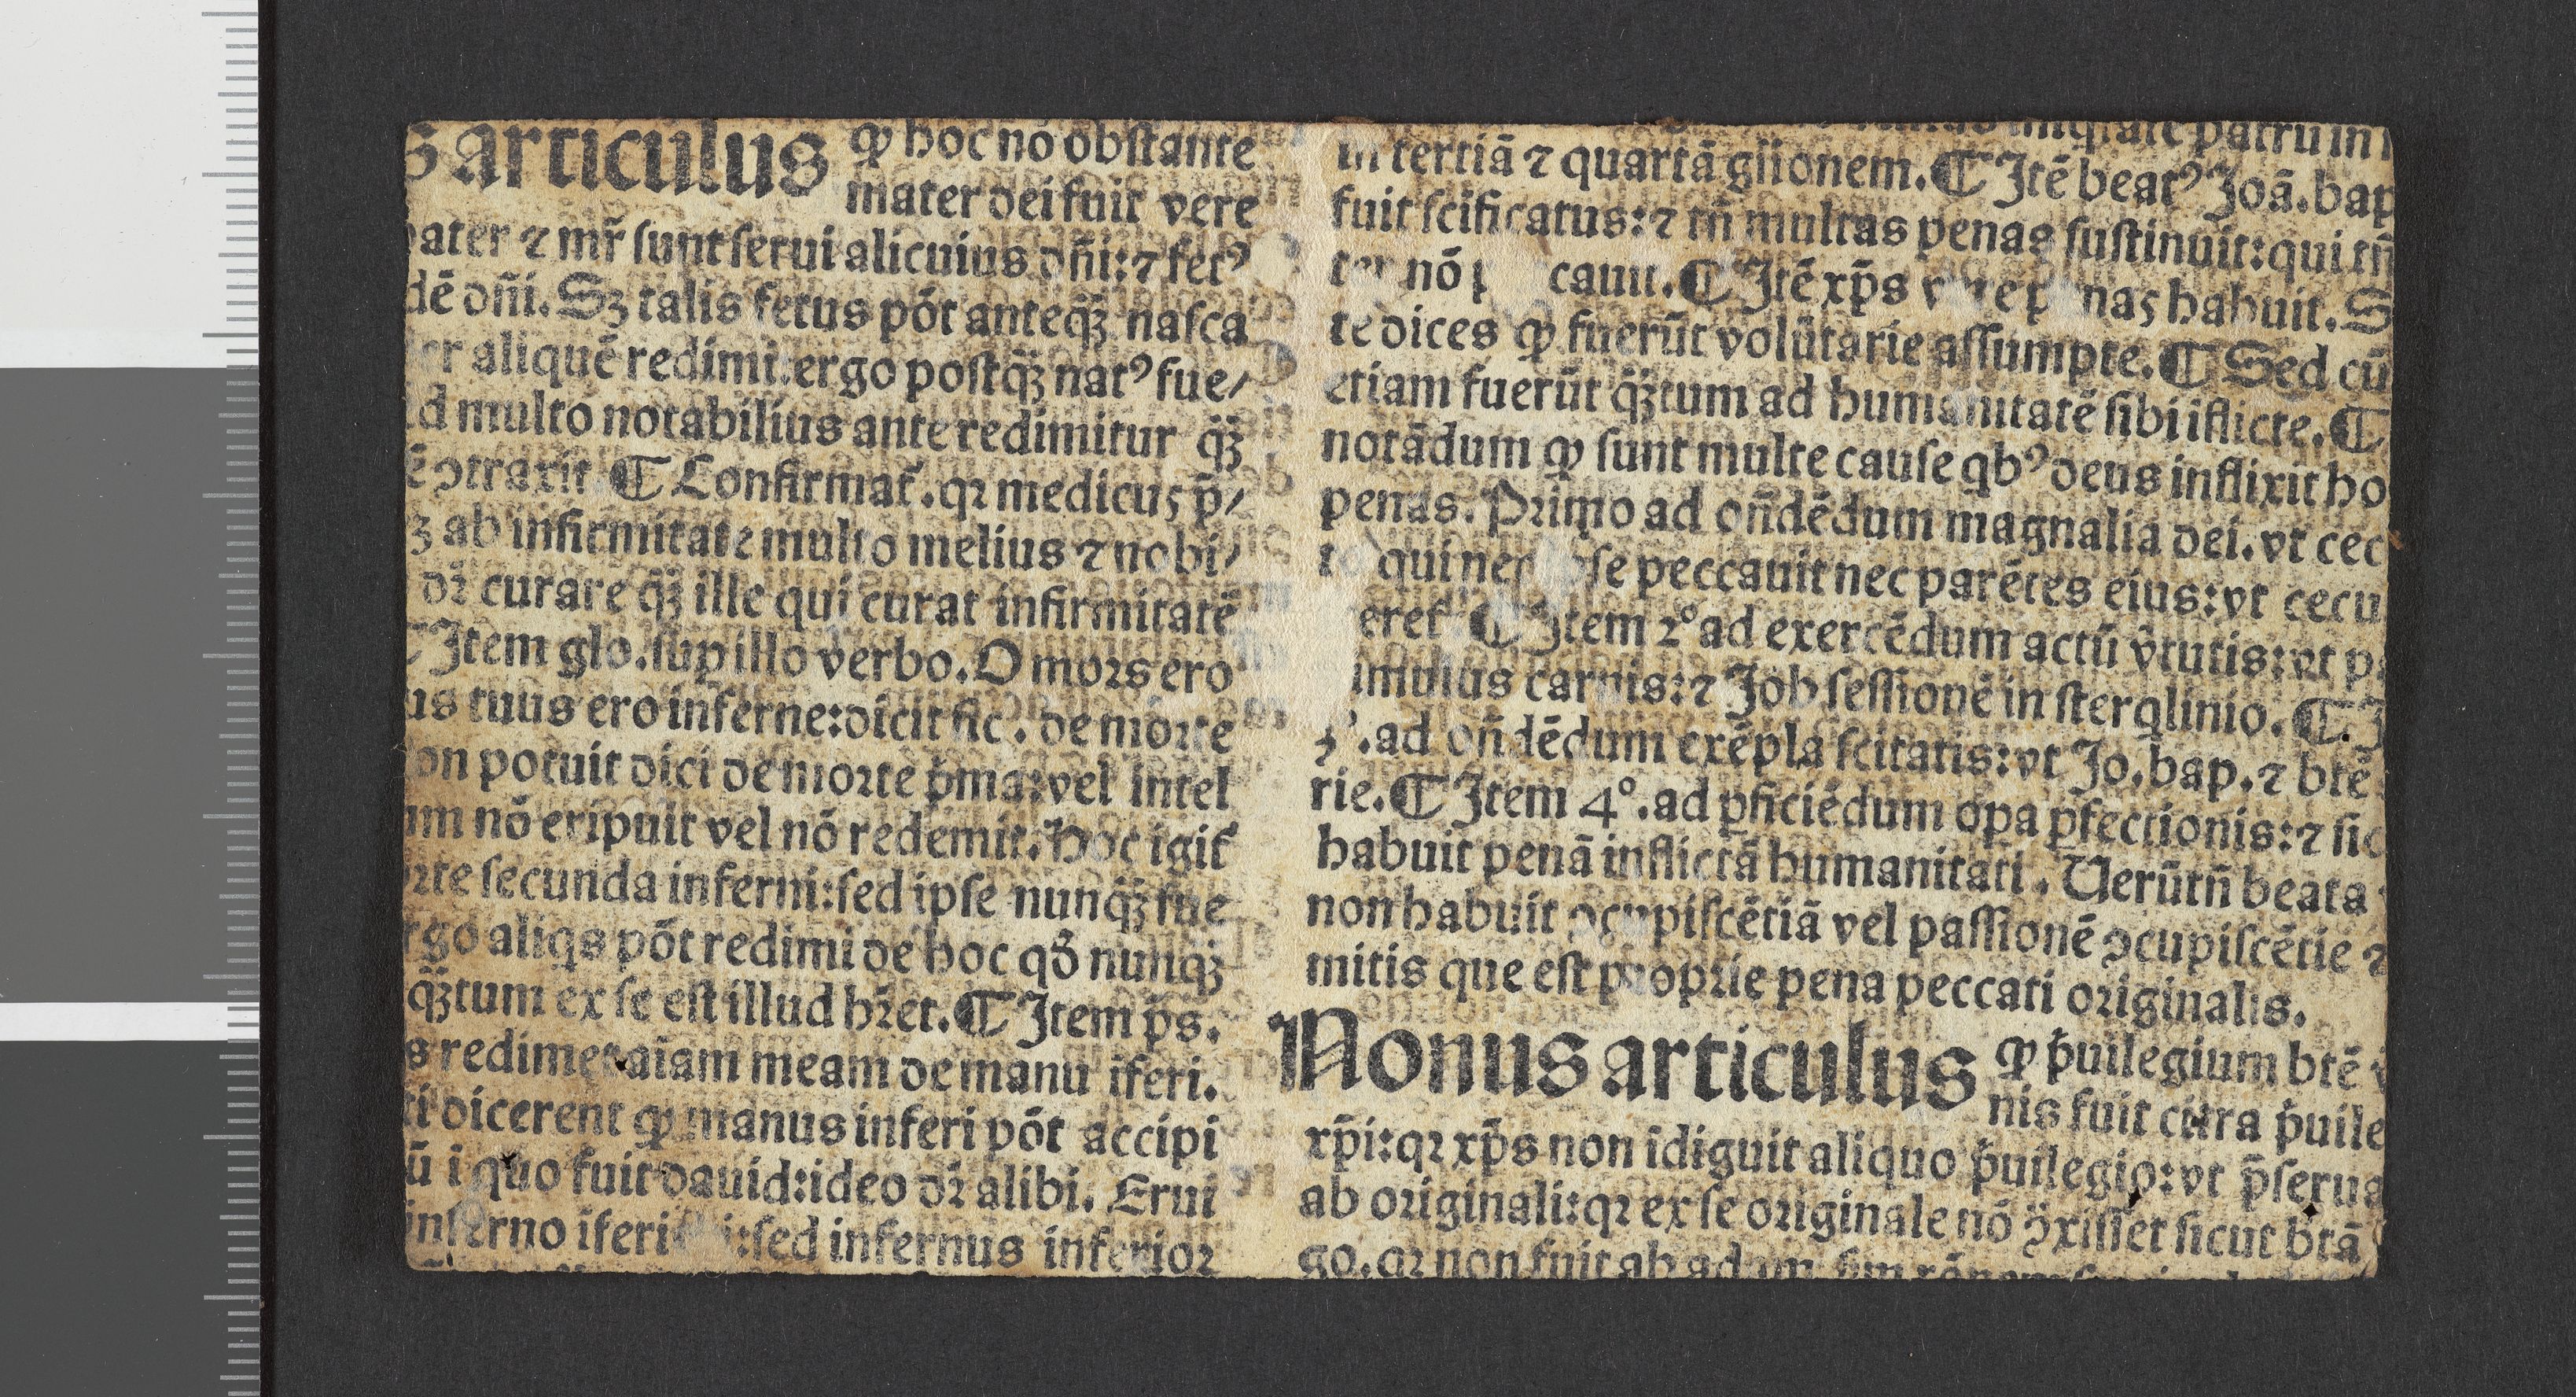 s articulus ꝙ hoc nō obstante
mater dei fuit vere
pater ⁊ mr̄ sunt serui alicuius dn̄i: ⁊ fetꝰ
dē dn̄i. Sꝫ talis fetus pōt anteqꝫ̄ nasca
er aliquē redimi: ergo postqꝫ̄ natꝰ fue/
d multo notabilius ante redimitur qꝫ̄
ē ꝯtraxit ¶ Confirmat̄. qꝛ medicus p̄/
ꝫ ab infirmitate multo melius ⁊ nobi/
dꝛ̄ curare qꝫ̄ ille qui curat infirmitatē
¶ Item glo. suꝑ illo verbo. O mors ero
us tuus ero inferne: dicit sic. de morte
on potuit dici de morte p̄ma: vel intel
um nō eripuit vel nō redemit. Hoc igit̄
rte secunda inferni: sed ipse nunqꝫ̄ fue
rgo aliqs pōt redimi de hoc qđ nunqꝫ̄
qꝫ̄tum ex se est illud hꝛ̄et. ¶ Item ps̄.
s redimet aīam meam de manu īferi.
ti dicerent ꝙ manus inferi pōt accipi
ū i quo fuit dauid: ideo dꝛ̄ alibi. Erui
inferno īferi sed infernus inferior
patrū in
in tertiā ⁊ quartā gn̄ionem. ¶ Itē beatꝰ Joā. bap
fuit sc̄ificatus: ⁊ tn̄ multas penas sustinuit: qui tn̄
nō cauit. ¶ Itē xp̄s nas habuit. S
te dices ꝙ fuerūt volūtarie assumpte. ¶ Sed cū
etiam fuerūt qꝫ̄tum ad humanitatē sibi iflicte. ¶
notādum ꝙ sunt multe cause qbꝰ deus inflixit ho
penas. Primo ad on̄dēdum magnalia dei. vt cec
qui nec ipse peccauit nec parētes eius: vt cecu
eret̄ ¶ Item 2º ad exercēdum actū v̄tutis: vt p
imulus carnis: ⁊ Job sessionē in sterqlinio. ¶ I
3º. ad on̄dēdum exēpla sc̄itatis: vt Jo. bap. ⁊ btē
rie. ¶ Item 4º. ad ꝑficiēdum oꝑa ꝑfectionis: ⁊ sic
habuit penā inflictā humanitati. Uerūtn̄ beata
non habuit ꝯcupiscētiā vel passionē ꝯcupiscētie ⁊
mitis que est proprie pena peccati originalis.
Nonus articulus ꝙ p̄uilegium btē v
nis fuit citra p̄uile
xp̄i: qꝛ xp̄s non īdiguit aliquo p̄uilegio: vt p̄serua
ab originali: qꝛ ex se originale nō ꝯ̄xisset sicut btā
go. qꝛ non fuit ab adam